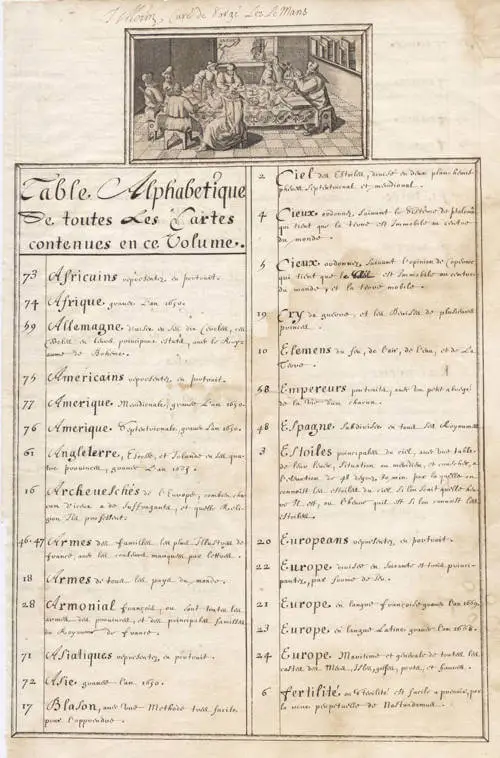 Curé de Sargé Lez le Mans
Table Alphabetique
De toutes Les Cartes
contenues en ce Volume.
73 Africains representez en portrait.
74 Afrique, gravée L'an 1650.
59 Allemagne, divisée en ses dix Cercles,
et leurs principaux estats, avec le Royau-
ume de Boheme.
75 Americains representez en portrait.
77 Amerique, Meridionale, gravée L'an 1650.
76 Amerique Septentrionale, gravée L'an 1650.
61 Angleterre, Escosse, et Irlande en ses qua-
tre provinces, gravée L'an
16 Archeueschés de l'Europe, combien cha-
cun d'iceux a de Suffragants, et quelle Reli-
gion Ils professent.
46-47 Armes des familles les plus Illustres de
France, avec les couleurs marquées par lettres.
18 Armes de tous les pays du monde.
28 Armorial françois, ou sont toutes les
armes des provinces, et des principales familles
du Royaume de France.
71 Asiatiques representez, en portrait.
72 Asie, gravée L'an 1650.
17 Blason, avec Une Methode tres facile
pour l'apprendre.
2 Ciel des Estoiles, divisé en deux plans hemis-
pheres, Septentrional et meridional.
4 Cieux ordonnez, suivant le Sisteme de ptolomée
qui tient que la terre est Immobile au centre
du monde.
5 Cieux ordonnez, suivant l'opinion de Copernic
qui tient que le Soleil est Immobile au centre
du monde, et la terre mobile.
19 Cry de guerre, et les Devises de plusieurs
princes.
10 Elemens du feu, de l'air, de l'eau, et de La
Terre.
58 Empereurs portraits, avec un petit abregé
de la Vie d'un chacun.
48 Espagne Subdivisée en tous ses Royaumes.
3 Estoiles principales du ciel, avec une table
de leur levée, Situation au meridien, et coucher, a
l'elevation de 48 degrez, par la quelle on
connoist les estoiles du ciel Si l'on sçait quelle heu-
re Il est, ou l'heure qu'il est Si l'on connoist les
estoilles.
20 Europeans representez, en portrait.
22 Europe divisée en
pantes, par
21 Europe, en langue françoise gravée L'an 1659.
23 Europe, en langue Latine gravée L'an
24 Europe Maritime et generale de toutes les
costes des Mers, Isles, golfes, ports, et
6 fertilité ou Sterilité est facile a prevoir, par
la roue perpetuelle de Nostradamus.